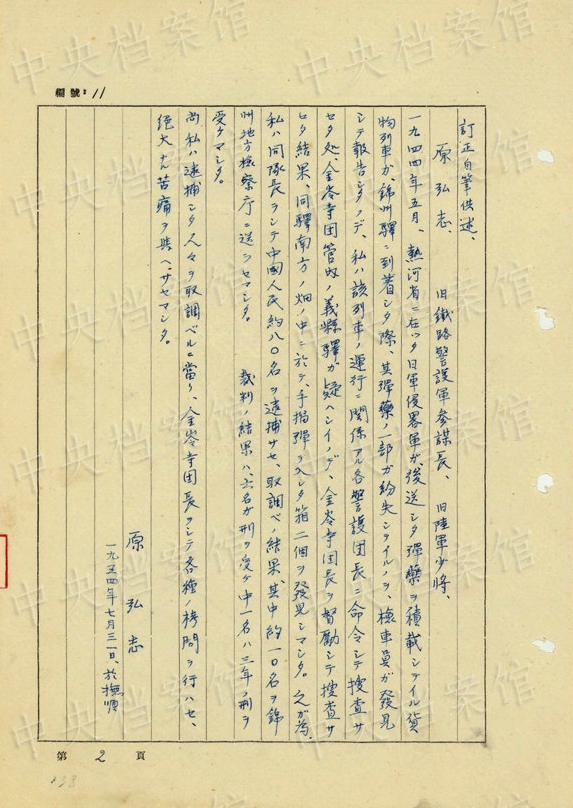 編號：11
訂正自筆供述、
原弘志、　旧鐵路警護軍參謀長、旧陸軍少将、
一九四四年五月、熱河省ニ在ツタ旧軍侵畧軍ガ、後送シタ彈藥ヲ積載シテイル貨
物列車ガ、錦州驛ニ到着シタ際、其彈藥ノ一部ガ紛失シテイルノヲ、檢車員ガ發見
シテ報告シタノデ、私ハ該列車ノ運行ニ関係アル各警護団長ニ命令シテ搜査サ
セタ処、金岺寺団管内ノ義縣驛ガ疑ヘシイノデ、金岺寺団長ヲ督勵シテ搜査サ
セタ結果、同驛南方ノ畑ノ中ニ於テ、手榴彈ヲ入レタ箱二個ヲ發見シマシタ。之ガ為、
私ハ同隊長ヲシテ中國人民約八〇名ヲ逮捕サセ、取調ベノ結果、其中約一〇名ヲ錦
州地方檢察庁ニ送ラセマシタ。　裁判ノ結果ハ、六名ガ刑ヲ受ケ中一名ハ三年ノ刑ヲ
受ケマシタ。
尚私ハ逮捕シタ人々ヲ取調ベルニ當リ、金岺寺団長ヲシテ各種ノ拷問ヲ行ハセ、
絕大ナ苦痛ヲ與ヘサセマシタ。
原弘志
一九五四年七月三一日、於撫順
第2頁
中央档案馆